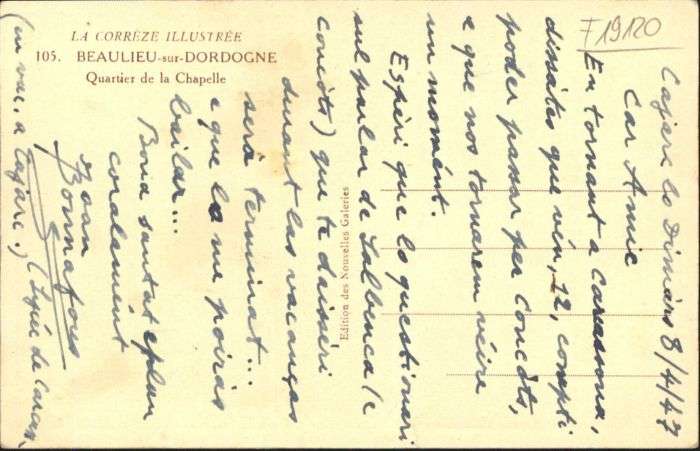 LA CORRÈZE ILLUSTRÉE
105. BEAULIEU-sur-DORDOGNE
Quartier de la Chapelle
Edition des Nouvelles Galeries
F19120
Cajarc lo Dimars 8/4/47
Car Amic
En tornant a Carcassona,
dissátas que ven, 12, compti
poder passar per Concòts,
e que nos tornarem véire
un moment.
Espèri que lo questionari
sul parlar de Lalbenca (e
concòts) que te daissèri
durant las vacanças
serà terminat...
e que lo me poiràs
bailar...
Bona santat e plan
coralament
Joan
Bonnafous
(en vac. a Cajarc.)